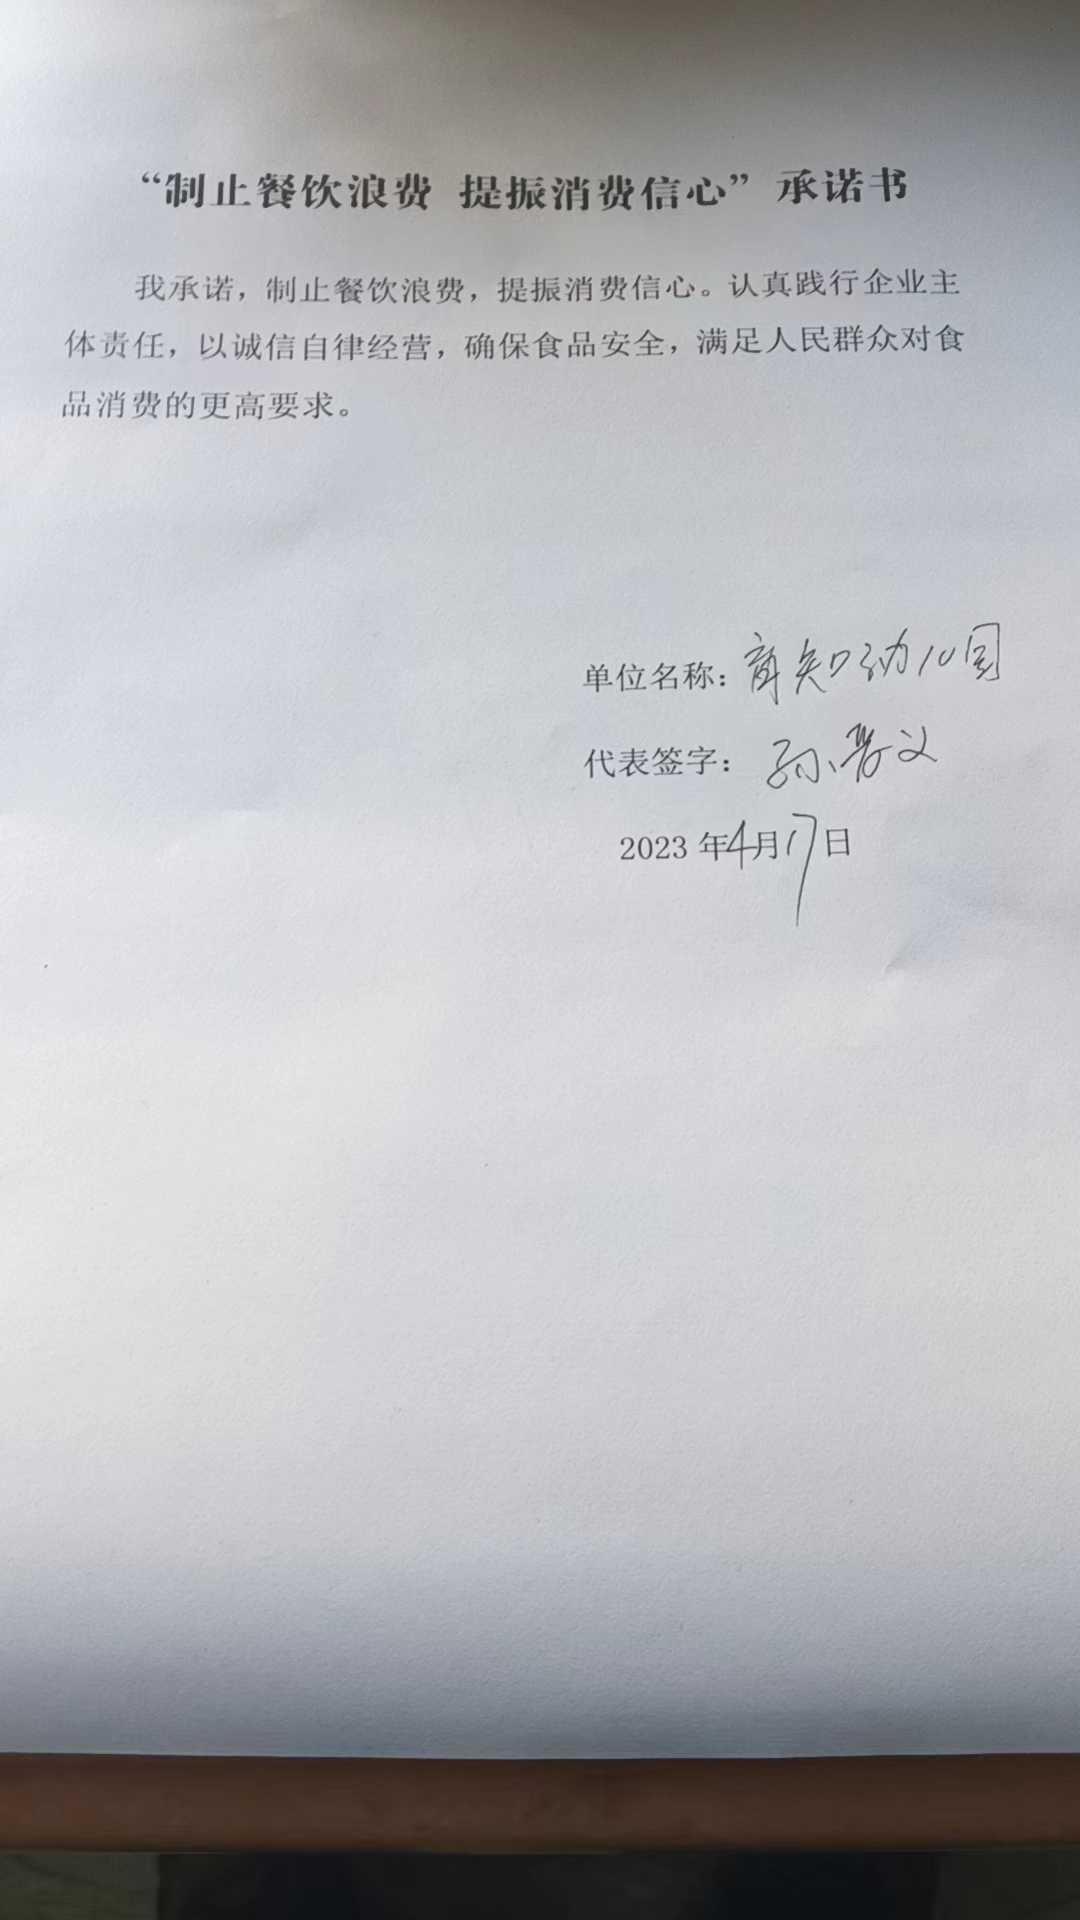 “制止餐饮浪费 提振消费信心”承诺书
我承诺，制止餐饮浪费，提振消费信心。认真践行企业主
体责任，以诚信自律经营，确保食品安全，满足人民群众对食
品消费的更高要求。
单位名称：育知幼儿园
代表签字：孙
2023年4月17日